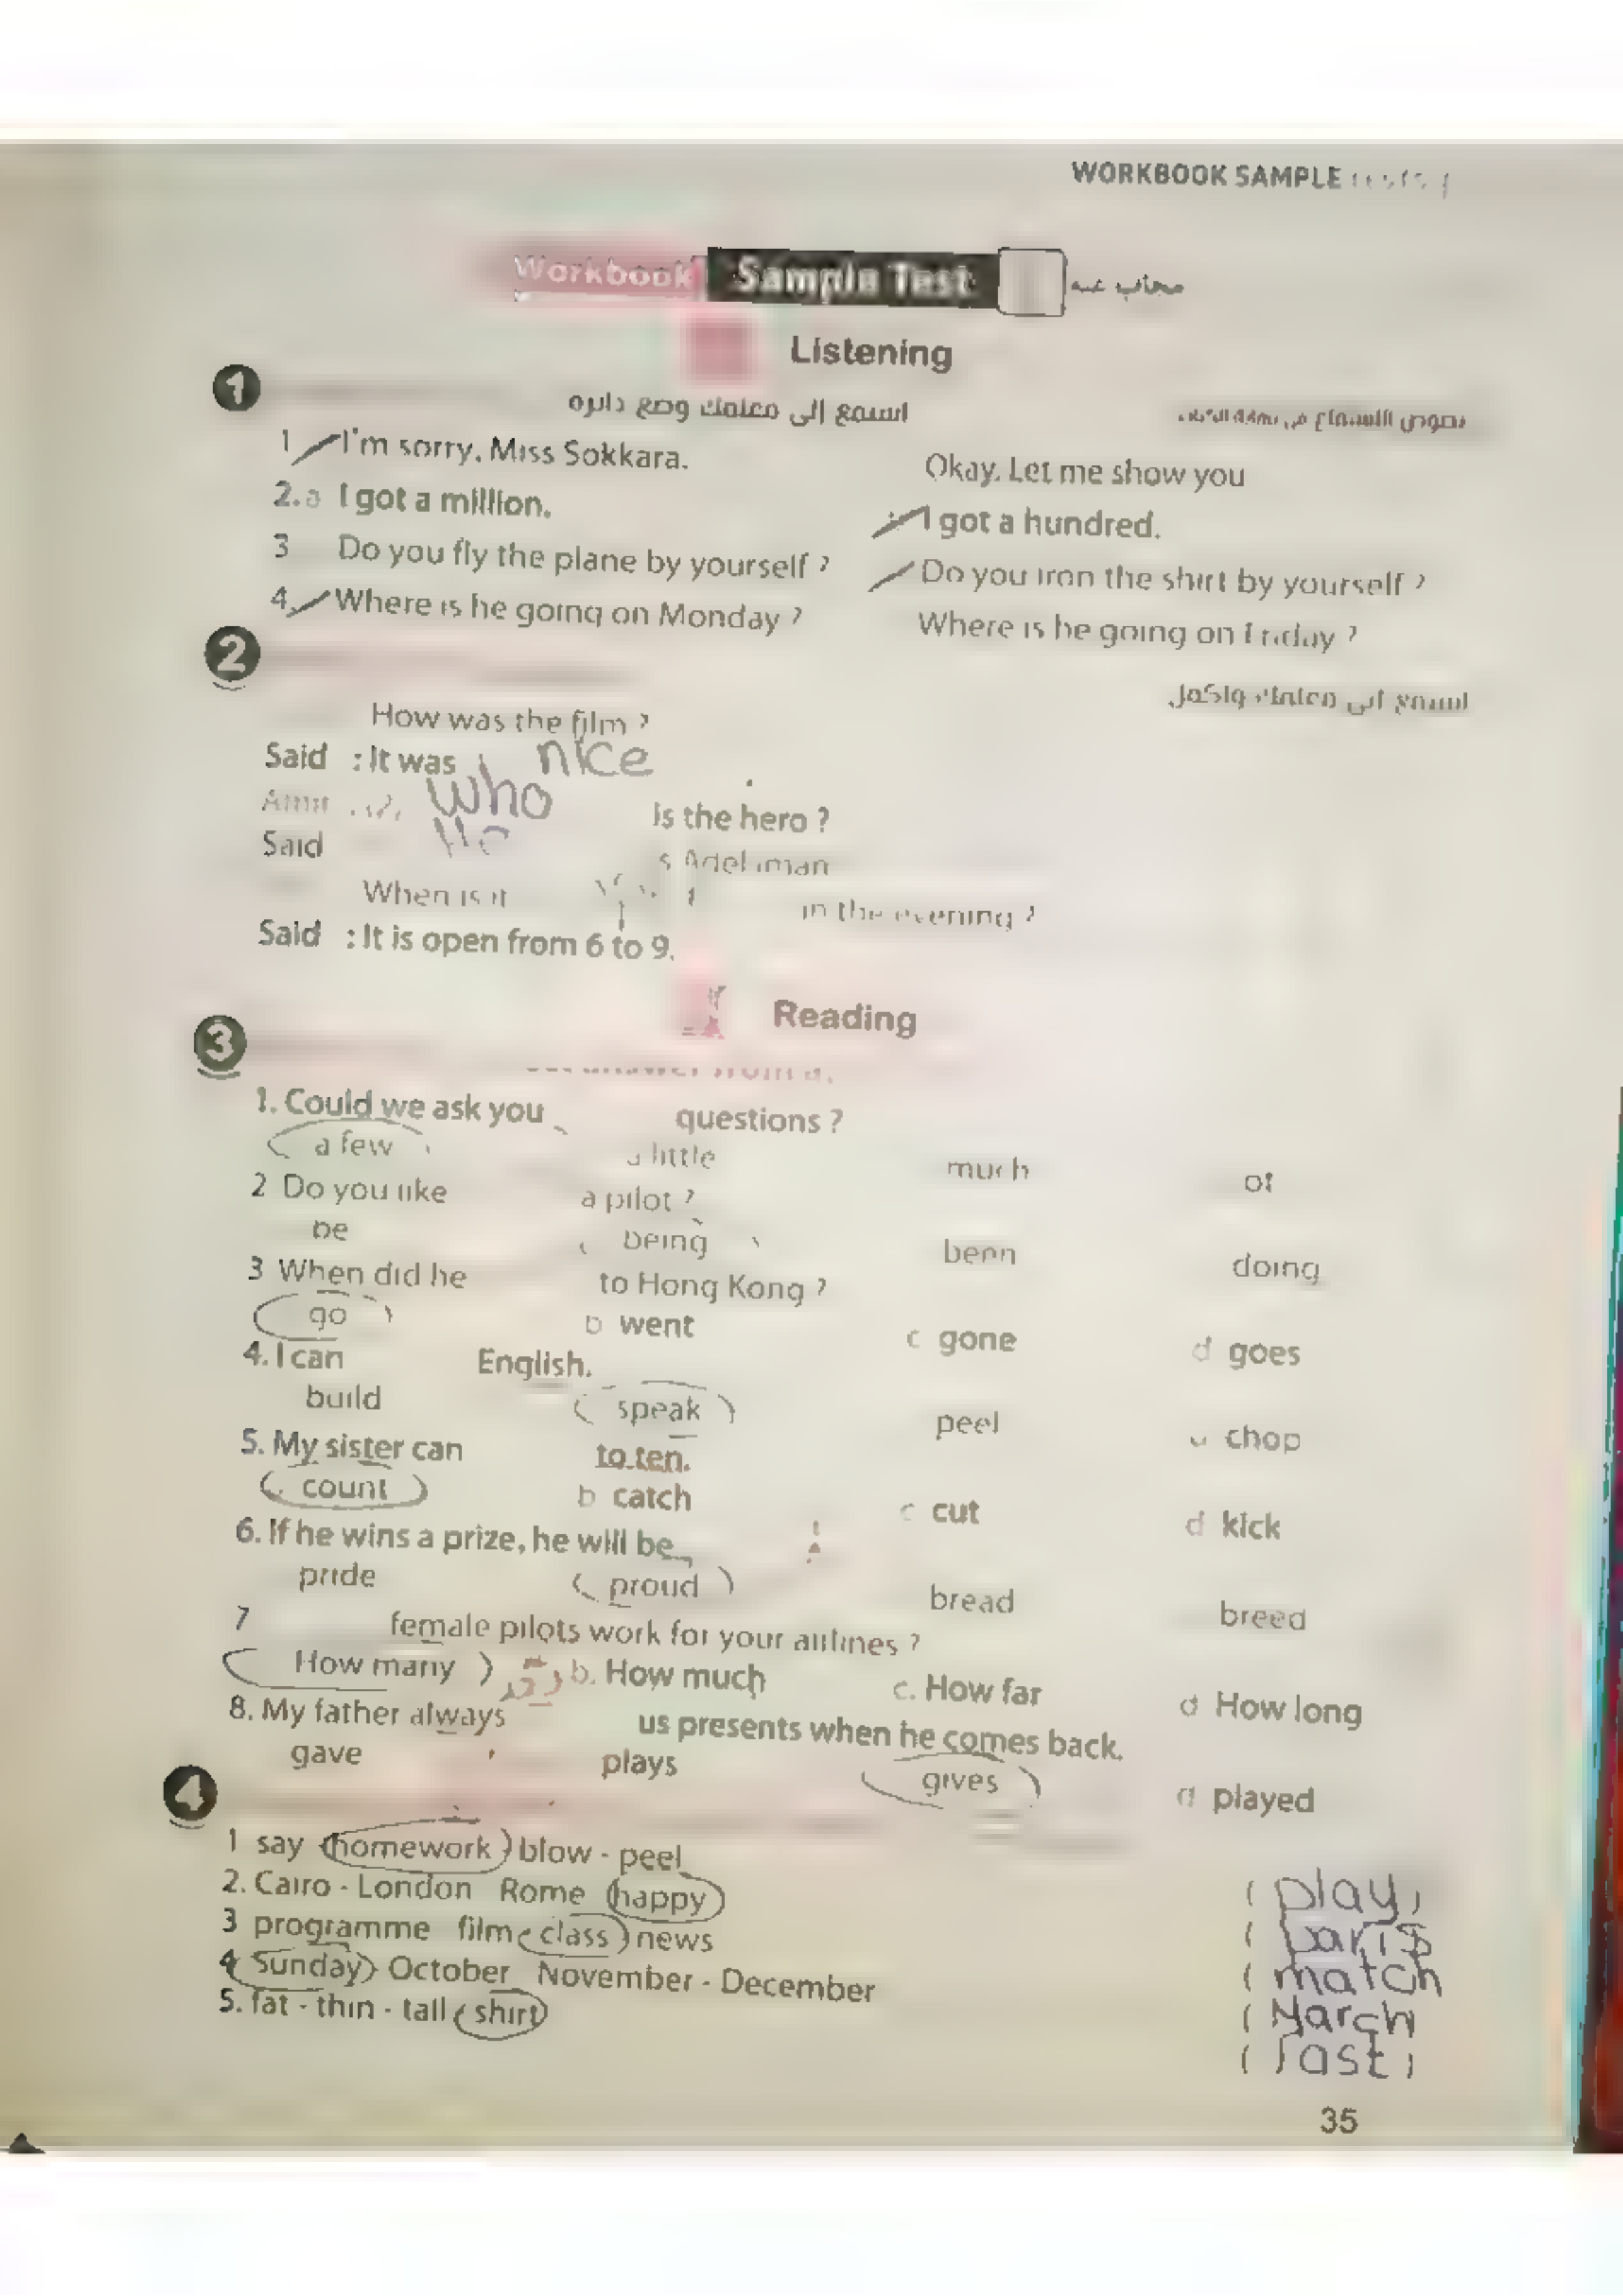 WORKBOOK SAMPLE
Workbook Sample Test مجاب عنه
Listening
1
استمع إلى معلمك وضع دائرة
1 I'm sorry, Miss Sokkara. Okay. Let me show you
2. a I got a million. I got a hundred.
3 Do you fly the plane by yourself ? Do you iron the shirt by yourself ?
4. Where is he going on Monday ? Where is he going on Friday ?
2
استمع إلى معلمك وأكمل
How was the film ?
Said : It was nice
who is the hero ?
Said He
When is it in the evening ?
Said : It is open from 6 to 9.
Reading
3
answer from a,
1. Could we ask you questions ?
a few a little much of
2 Do you like a pilot ?
be being been doing
3 When did he to Hong Kong ?
go b went c gone d goes
4. I can English.
build speak peel chop
5. My sister can to ten.
count b catch c cut d kick
6. If he wins a prize, he will be
pride proud bread breed
7 female pilots work for your airlines ?
How many b. How much c. How far d How long
8. My father always us presents when he comes back.
gave plays gives d played
4
1 say homework blow - peel ( play )
2. Cairo - London Rome happy ( paris
3 programme film class news ( match
4 Sunday October November - December ( March
5. fat - thin - tall shirt (
35